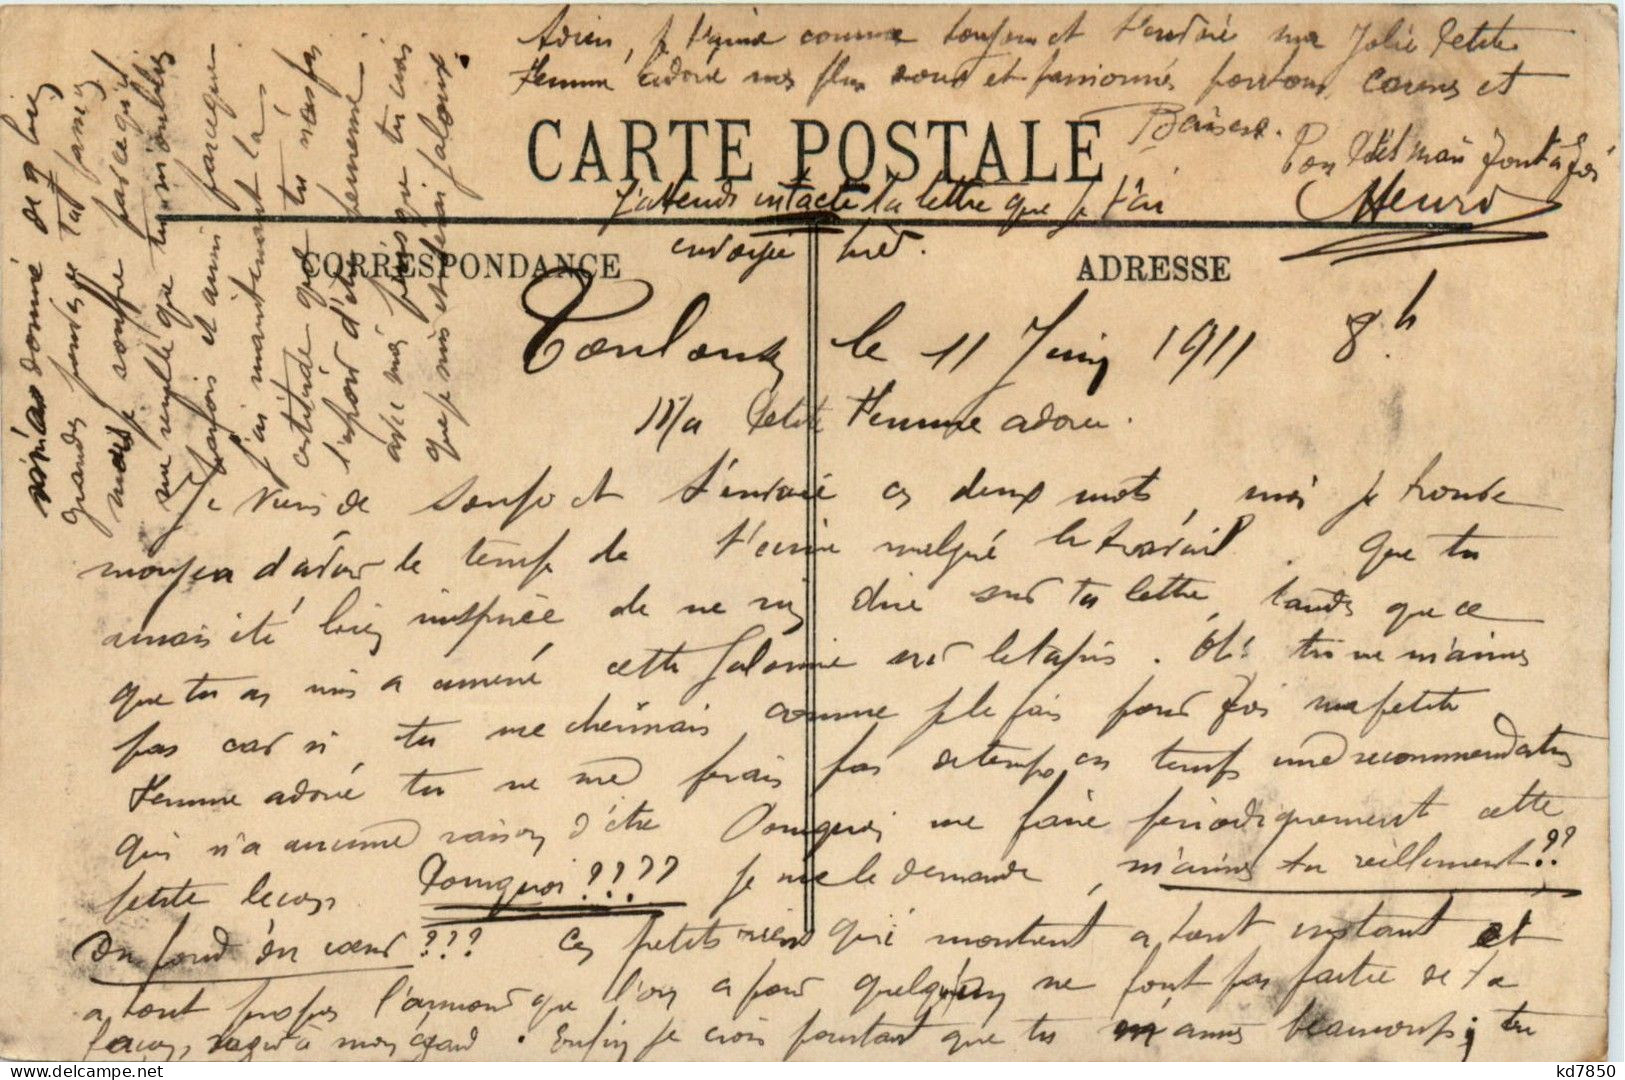 Adieu, je t'aime comme toujours et t'envoie ma Jolie Petite
Femme adorée mes plus doux et passionnés caresses et
Baisers.
CARTE POSTALE
Ton petit mari
J'attends intacte la lettre que je t'ai
Henri
envoyée hier.
CORRESPONDANCE
ADRESSE
Toulouse le 11 Juin 1911 8h
Ma Petite Femme adorée.
Je viens de souper et t'envoie ces deux mots, moi je trouve
moyen d'avoir le temps de t'écrire malgré le travail. Que tu
aurais été bien inspirée de ne rien dire sur ta lettre, tandis que ce
que tu as mis a amené cette Jalousie sur le tapis. Oh! tu ne m'aimes
pas car si tu me chérissais comme je le fais pour toi ma petite
Femme adorée tu ne me ferais pas de temps en temps une recommandation
qui n'a aucune raison d'être Pourquoi me faire périodiquement cette
petite leçon Pourquoi???? je me le demande, m'aimes tu réellement??
Du fond du cœur??? Ces petits riens qui montrent a tout instant et
a tout propos l'amour que l'on a pour quelqu'un ne font pas partie de ta
façon, à mon égard. Enfin je crois pourtant que tu m'aimes beaucoup; tu
m'as donné de si bien
grandes tu
mais je souffre parce qu'il
me semble que tu m'oublies
parfois et aussi parce que
j'ai maintenant la
certitude que tu n'as pas
l'espoir d'être
avec moi puisque tu crois
que je suis et serai jaloux.
kd7850